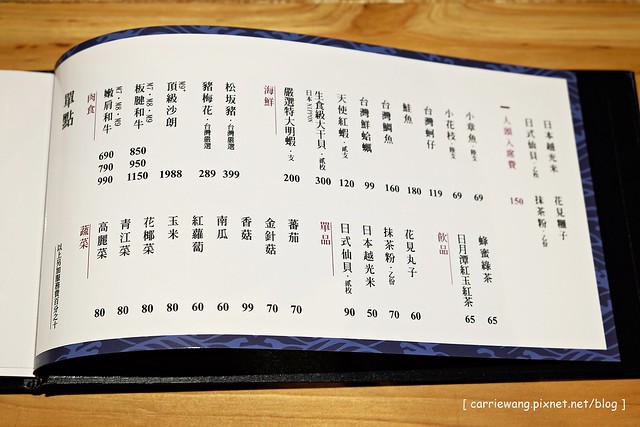 單點
肉食
嫩肩和牛 M7・M8・M9 690 790 990
板腱和牛 M7・M8・M9 850 950 1150
頂級沙朗 M9+ 1988
豬梅花・台灣嚴選 289
松坂豬・台灣嚴選 399
海鮮
嚴選特大明蝦・支 200
生食級大干貝・貳枚 日本 300
天使紅蝦・貳支 120
台灣鮮蛤蠣 99
台灣鯛魚 160
鮭魚 180
台灣蚵仔 119
小花枝・種支 69
小章魚・種支 69
一人鍋入席費 150
日式仙貝・乙枚
抹茶粉・乙份
日本越光米
花見糰子
以上另加服務費百分之十
蔬菜
高麗菜 80
青江菜 80
花椰菜 80
玉米 80
紅蘿蔔 60
南瓜 60
香菇 99
金針菇 70
蕃茄 70
單品
日式仙貝・貳枚 90
日本越光米 50
抹茶粉・乙份 70
花見丸子 60
飲品
日月潭紅玉紅茶 65
蜂蜜綠茶 65
[ carriewang.pixnet.net/blog ]